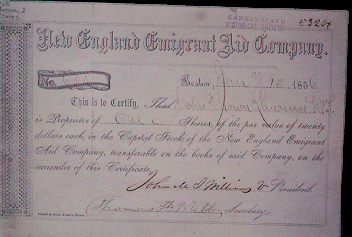 KANSAS STATE
HISTORICAL SOCIETY
New England Emigrant Aid Company.
No.
Boston, June 1856
This is to Certify, That
is Proprietor of One Shares, of the par value of twenty
dollars each, in the Capital Stock of the New England Emigrant
Aid Company, transferable on the books of said Company, on the
surrender of this Certificate.
John M S Williams V. President.
Thomas H. Webb, Secretary.